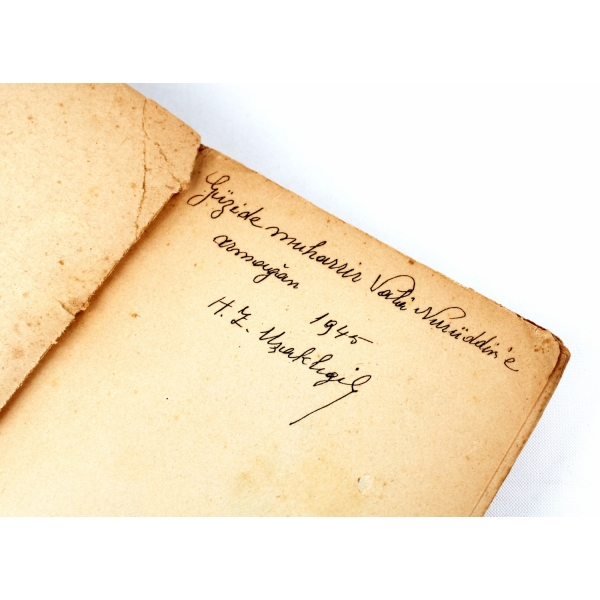 Güzide muharrir Valâ Nurüddin'e
armağan
1945
H. Z. Uşaklıgil